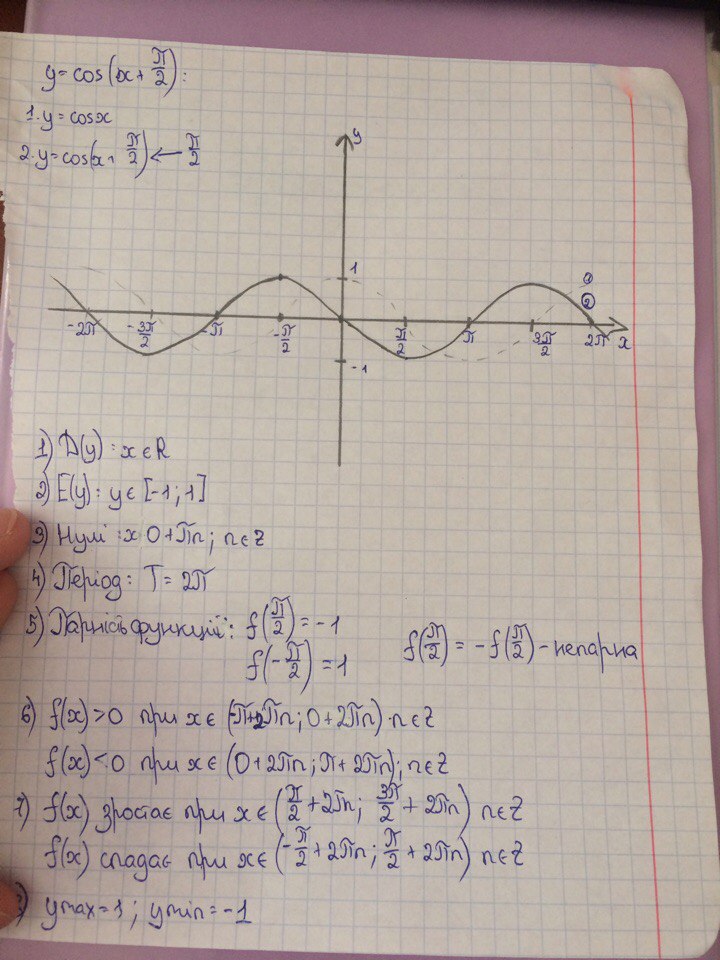 y=cos(x+π/2):
1. y=cosx
2. y=cos(x+π/2) ← π/2
y
1
①
②
-2π -3π/2 -π -π/2 π/2 π 3π/2 2π x
-1
1) D(y): x∈R
2) E(y): y∈[-1;1]
3) Нулі: x 0+πn; n∈Z
4) Період: T=2π
5) Парність функції: f(π/2)=-1
f(-π/2)=1
f(π/2)=-f(π/2)-непарна
6) f(x)>0 при x∈(-π+2πn; 0+2πn)·n∈Z
f(x)<0 при x∈(0+2πn; π+2πn); n∈Z
7) f(x) зростає при x∈(π/2+2πn; 3π/2+2πn) n∈Z
f(x) спадає при x∈(-π/2+2πn; π/2+2πn) n∈Z
ymax=1; ymin=-1